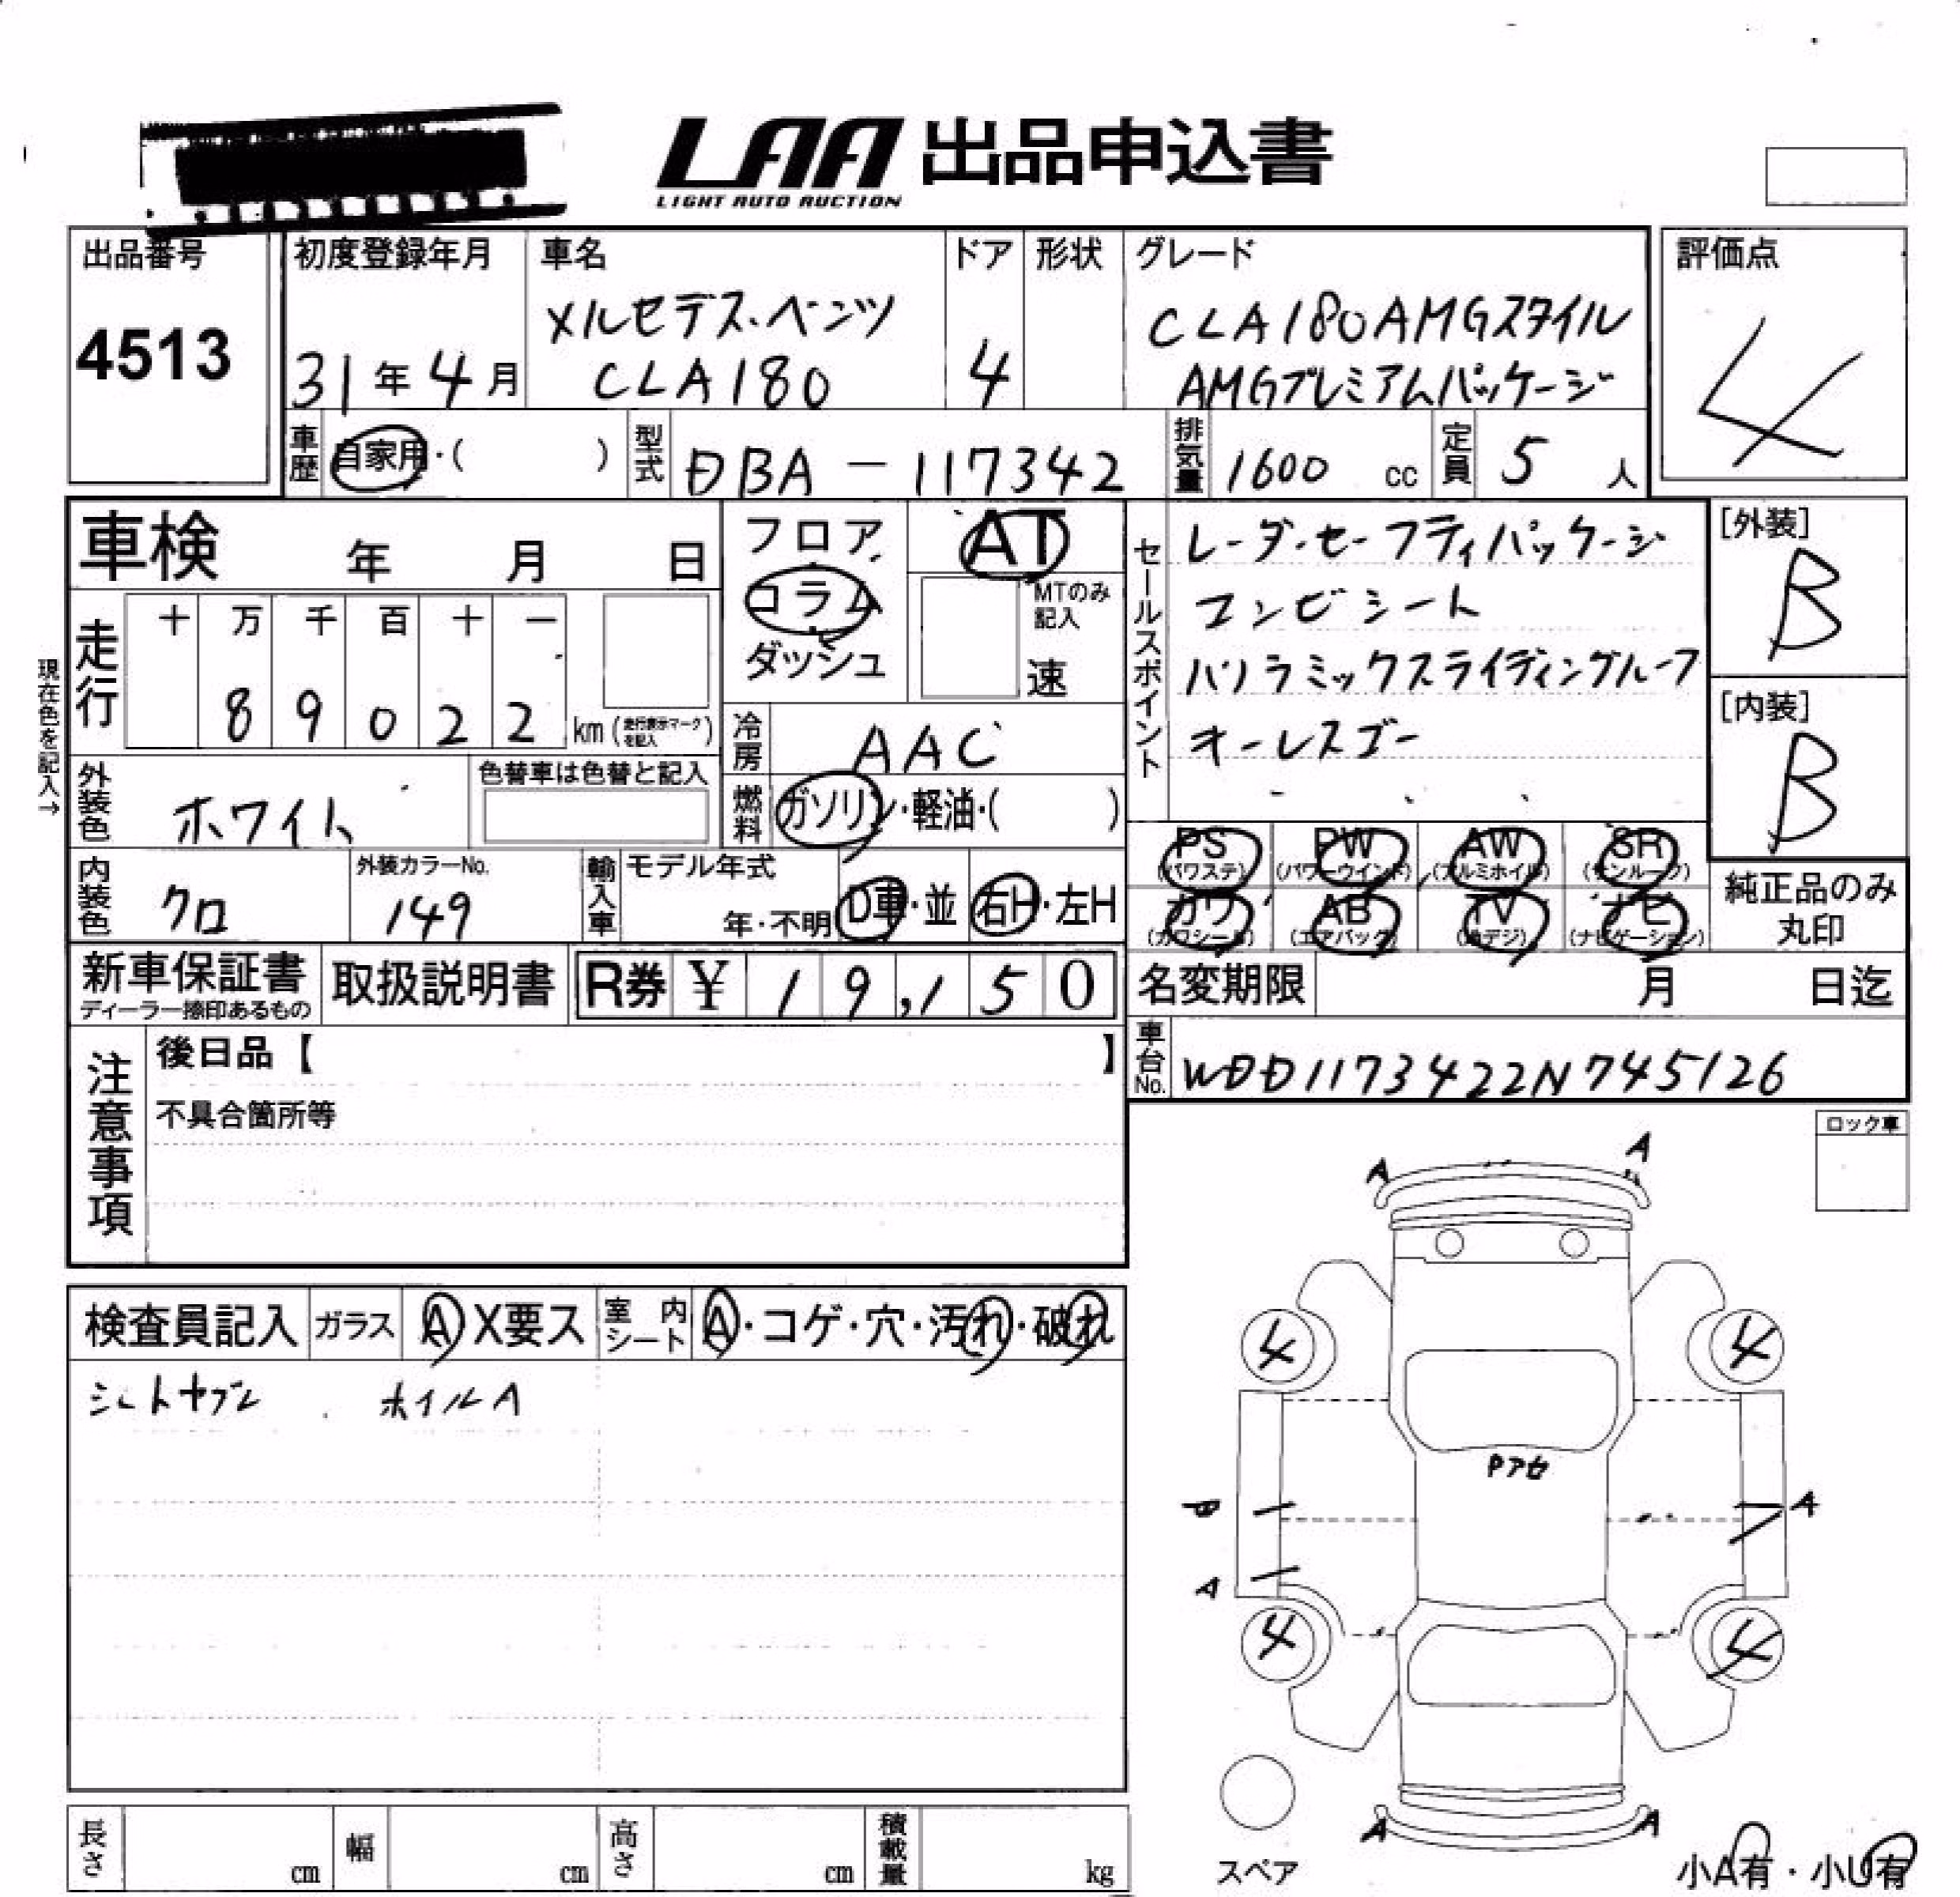 LAA 出品申込書
LIGHT AUTO AUCTION
出品番号
4513
初度登録年月
31年4月
車名
メルセデス・ベンツ
CLA180
ドア
4
形状
グレード
CLA180AMGスタイル
AMGプレミアムパッケージ
評価点
4
車歴
自家用・( )
型式
DBA-117342
排気量
1600 cc
定員
5 人
車検 年 月 日
走行
十 万 千 百 十 一
8 9 0 2 2 km (走行表示マークを記入)
現在色を記入→
外装色
ホワイト
色替車は色替と記入
内装色
クロ
外装カラーNo.
149
フロア
コラム
ダッシュ
AT
MTのみ記入
速
冷房
AAC
燃料
ガソリン・軽油・( )
輸入車
モデル年式
年・不明
D車・並
右H・左H
セールスポイント
レーダーセーフティパッケージ
コンビシート
パノラミックスライディングルーフ
キーレスゴー
[外装]
B
[内装]
B
PS (パワステ)
PW (パワーウインド)
AW (アルミホイル)
SR (サンルーフ)
カワ (カワシート)
AB (エアバック)
TV (地デジ)
ナビ (ナビゲーション)
純正品のみ
丸印
新車保証書
ディーラー捺印あるもの
取扱説明書
R券 ¥ 19,150
名変期限 月 日迄
車台No.
WDD1173422N745126
注意事項
後日品【 】
不具合箇所等
ロック車
検査員記入
ガラス
A X要ス
室内シート
A・コゲ・穴・汚れ・破れ
シートヤブレ ホイルA
A
A
4
4
Pアセ
A
A
4
4
A
A
スペア
小A有・小U有
長さ cm
幅 cm
高さ cm
積載量 kg